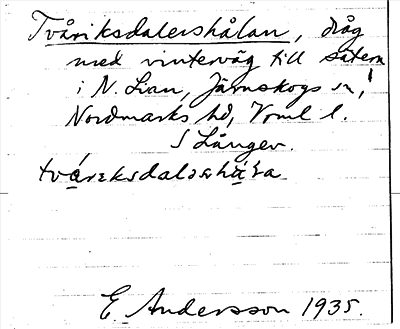 Tvåriksdalershålan, dråg
med vinterväg till sätern
i N. Lian, Järnskogs sn,
Nordmarks hd, Vrml l.
S Långev.
E. Andersson 1935.